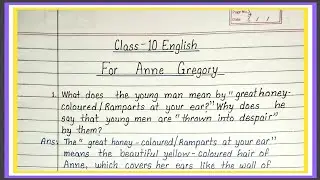 Page No.
Date
Class-10 English
For Anne Gregory
1. What does the young man mean by "great honey-
coloured/Ramparts at your ear?" Why does he
say that young men are "thrown into despair"
by them?
Ans: The "great honey-coloured/Ramparts at your ear"
means the beautiful yellow-coloured hair of
Anne, which covers her ears like the wall of